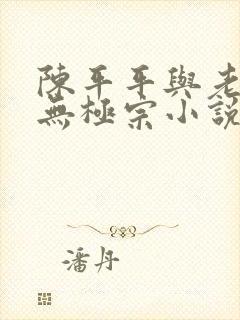 陳平平與老
無極宗小說
潘丹